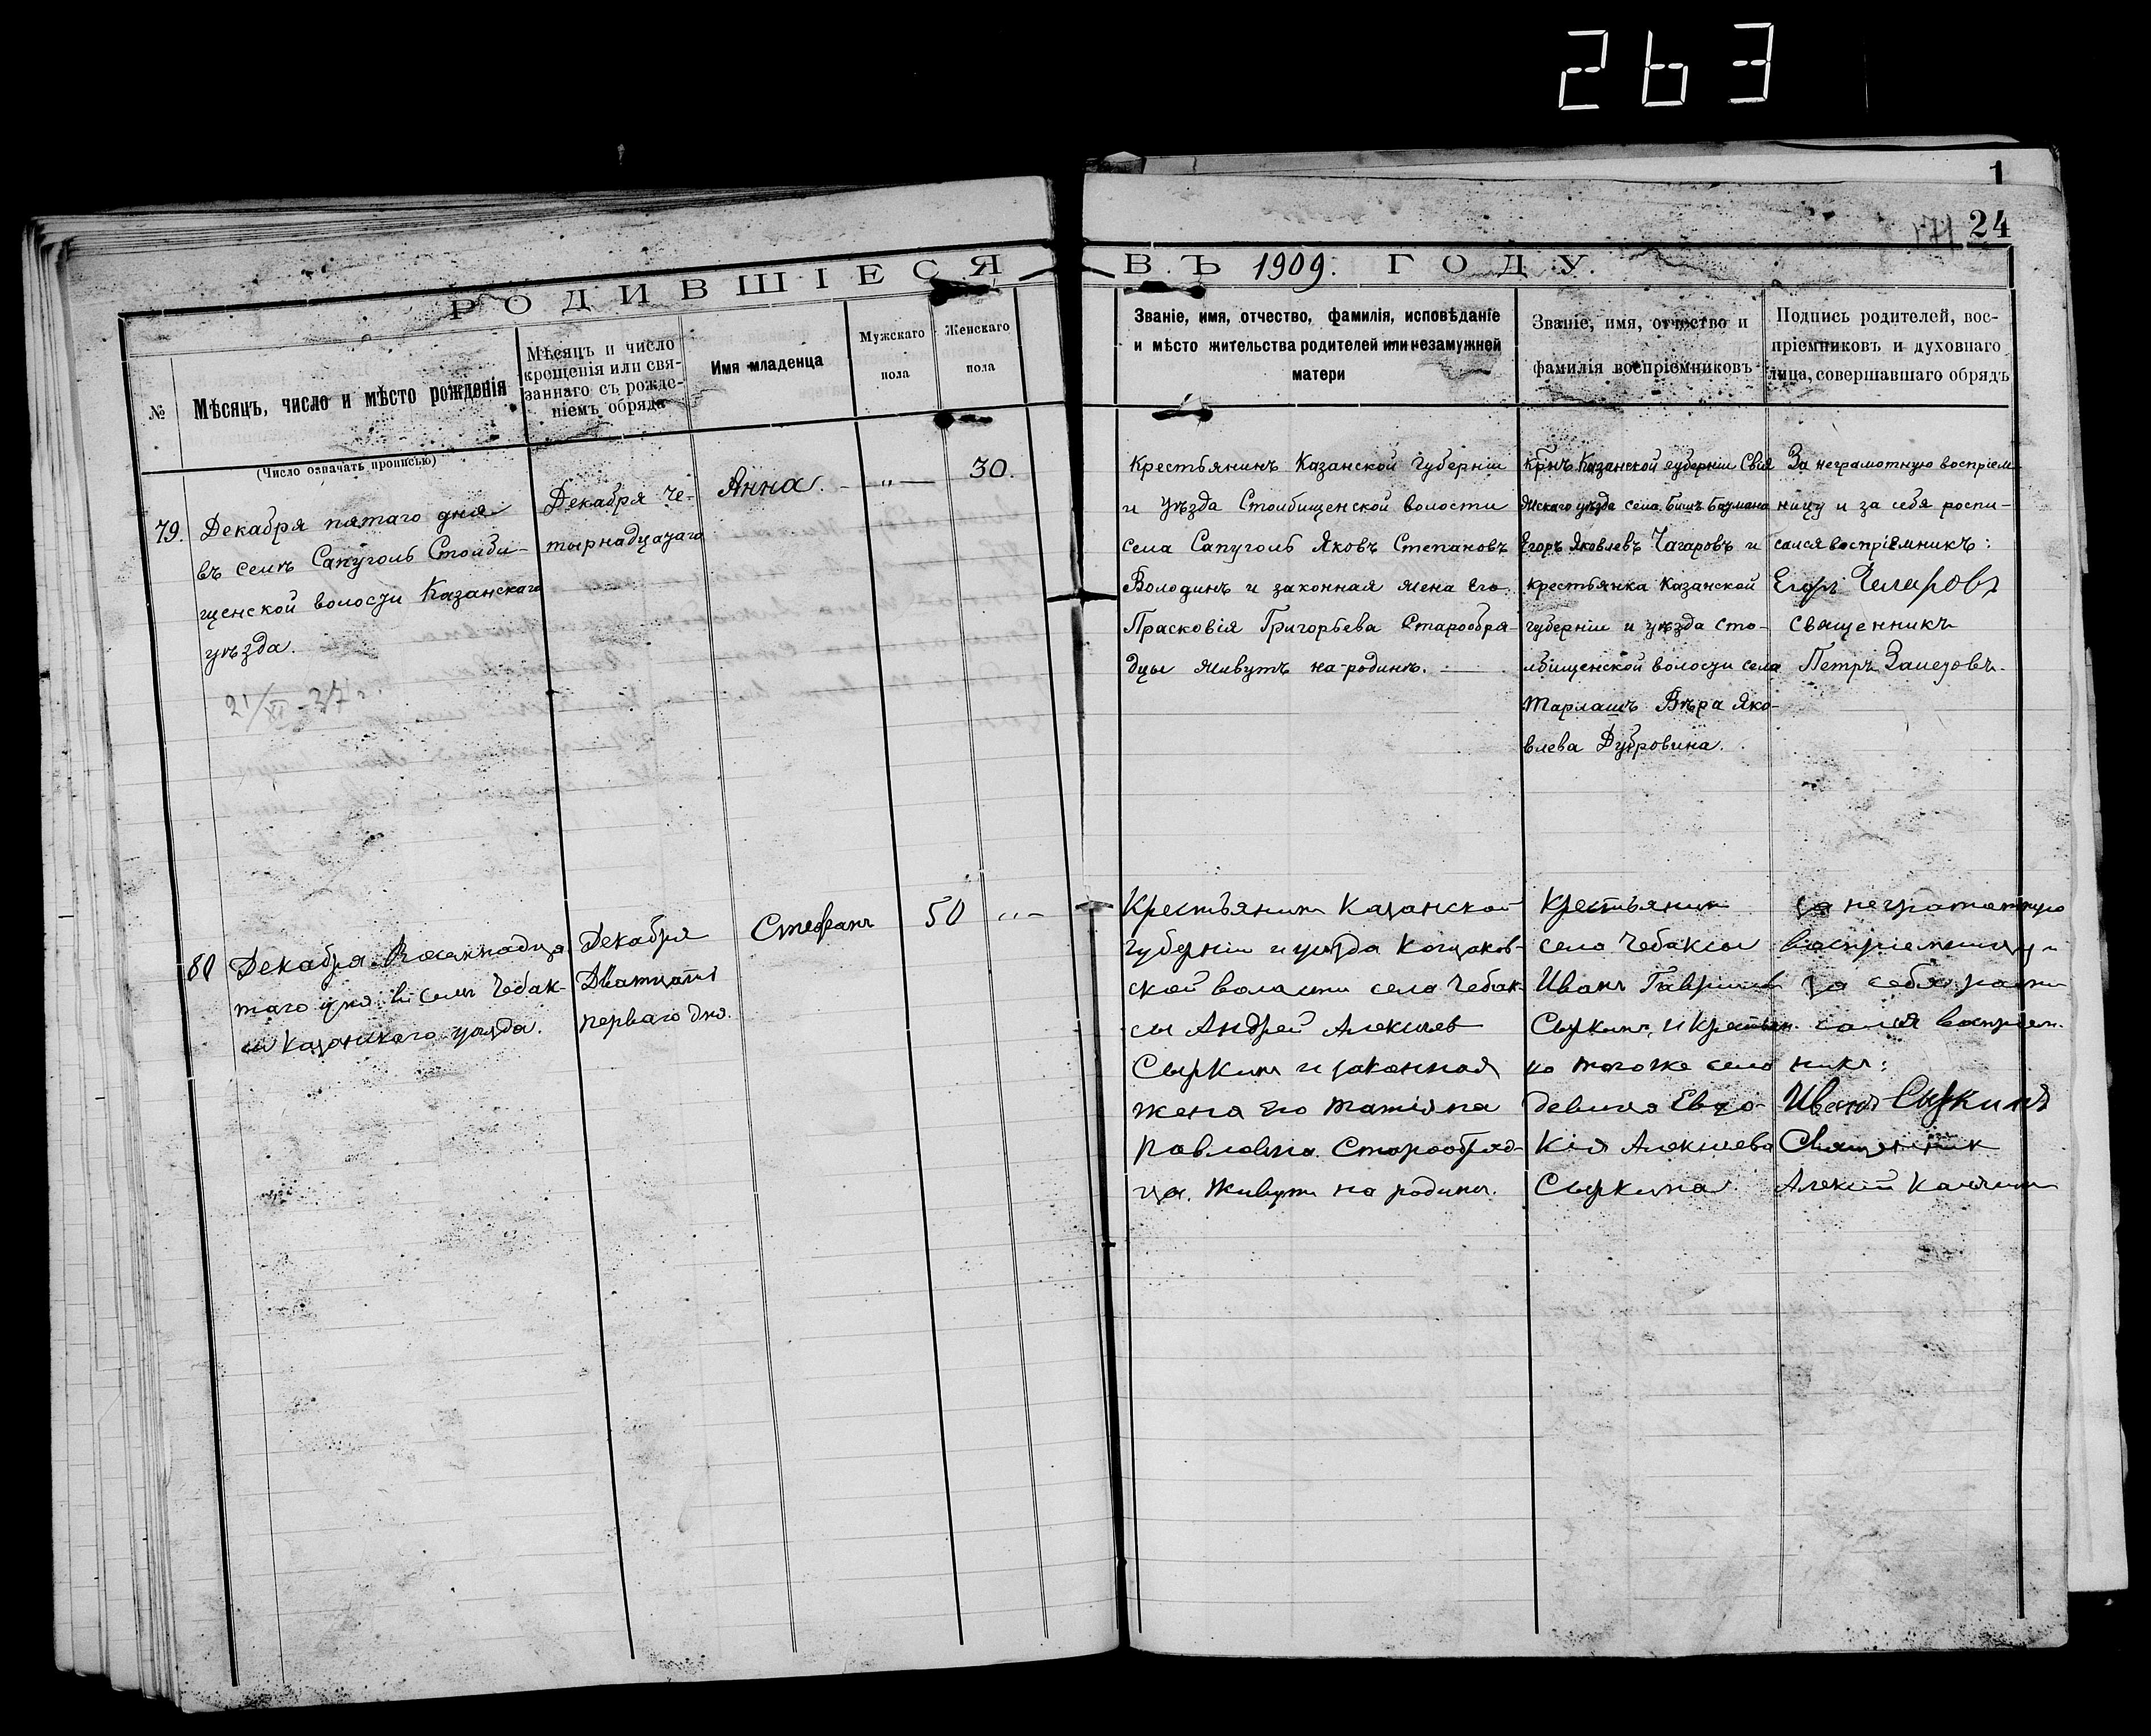 263
1
171 24
РОДИВШІЕСЯ
ВЪ 1909. ГОДУ.
№
Мѣсяцъ, число и мѣсто рожденія
(Число означать прописью)
Мѣсяцъ и число
крещенія или свя-
заннаго съ рожде-
ніемъ обряда
Имя младенца
Мужскаго
пола
Женскаго
пола
Званіе, имя, отчество, фамилія, исповѣданіе
и мѣсто жительства родителей или незамужней
матери
Званіе, имя, отчество и
фамилія воспріемниковъ
Подпись родителей, вос-
пріемниковъ и духовнаго
лица, совершавшаго обрядъ
79.
Декабря пятаго дня
въ селѣ Сапуголь Столби-
щенской волости Казанскаго
уѣзда.
21/XI - 37 г.
Декабря че-
тырнадцатаго
Анна.
„ —
30.
Крестьянинъ Казанской губерніи
и уѣзда Столбищенской волости
села Сапуголь Яковъ Степановъ
Володинъ и законная жена его
Прасковія Григорьева Старообря-
дцы живутъ на родинѣ.
Крнъ Казанской губерніи Свія
жскаго уѣзда села
Егоръ Яковлевъ Чагаровъ и
крестьянка Казанской
губерніи и уѣзда Сто-
лбищенской волости села
Тарлашъ Вѣра Яко-
влева Дубровина.
За неграмотную воспріем-
ницу и за себя роспи-
сался воспріемникъ:
Егоръ
священникъ
Петръ
80
Декабря Восемнадца
таго дня въ селѣ Чебак-
сы Казанскаго уѣзда.
Декабря
Дватцать
перваго дня.
Стефанъ
50
„ -
Крестьянинъ Казанской
губерніи и уѣзда Кощаков-
ской воласти села Чебак-
сы Андрей Алексѣев
Сыркинъ и законная
жена его татіяна
Павловна. Старообряд-
ца. Живутъ на родинѣ.
Крестьянинъ
села Чебаксы
Иванъ Гавриловъ
Сыркинъ, и Крестьян.
ка того же села
девица Евдо-
кія Алексѣева
Сыркина
за неграматную
васпріемницу и
за себя распи
сался васпріем.
никъ:
Иванъ Сыркинъ
Священник
Алексѣй